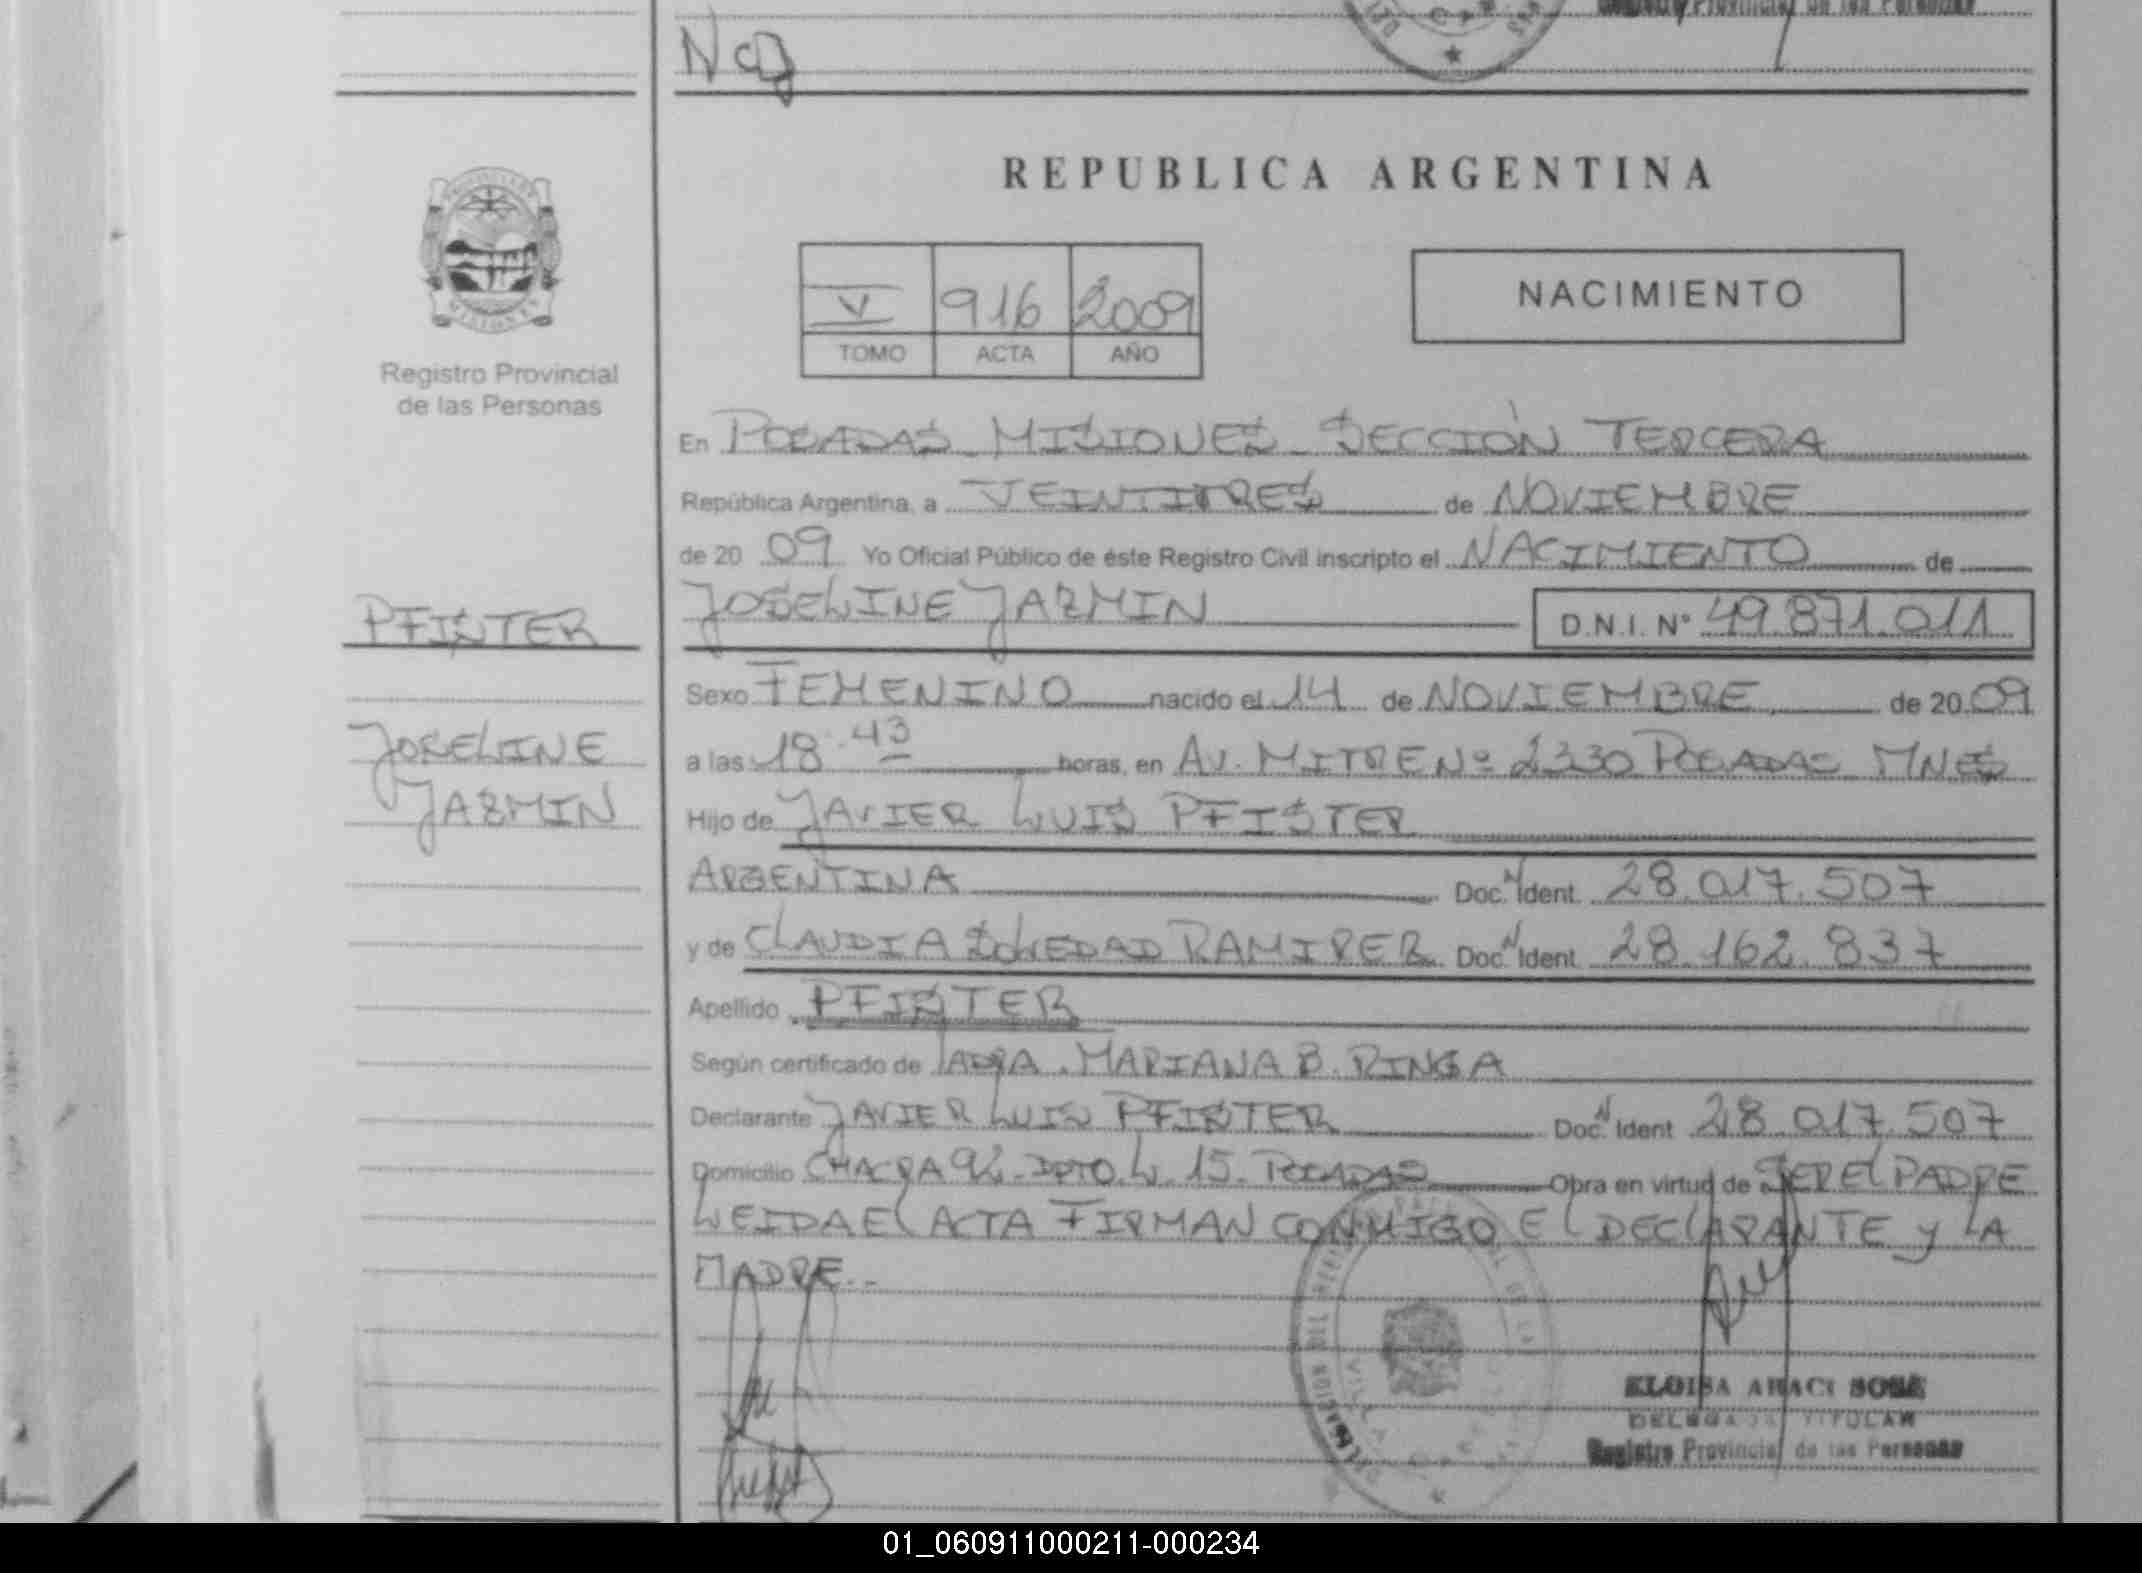 Registro Provincial de las Personas
REPUBLICA ARGENTINA
V 916 2009
TOMO ACTA AÑO
NACIMIENTO
Registro Provincial
de las Personas
En POSADAS - MISIONES - SECCIÓN TERCERA
República Argentina, a VEINTITRES de NOVIEMBRE
de 20 09 Yo Oficial Público de éste Registro Civil inscripto el NACIMIENTO de
JOSELINE JAZMIN D.N.I. N° 49.871.011
PFISTER
JOSELINE
JAZMIN
Sexo FEMENINO nacido el 14 de NOVIEMBRE de 20 09
a las 18:43 horas, en AV. MITRE Nº 2330 POSADAS MNES
Hijo de JAVIER LUIS PFISTER
ARGENTINA Doc. N Ident. 28.017.507
y de CLAUDIA SOLEDAD RAMIREZ Doc. N Ident. 28.162.837
Apellido PFISTER
Según certificado de LA DRA. MARIANA B. RINGA
Declarante JAVIER LUIS PFISTER Doc. N Ident 28.017.507
Domicilio CHACRA 92 - DPTO. L. 15 - POSADAS Obra en virtud de SER El PADRE
LEIDA El ACTA FIRMAN CONMIGO El DEClARANTE y LA
MADRE.-
ELOISA ARACI SOSA
DELEGADA TITULAR
Registro Provincial de las Personas
01_060911000211-000234